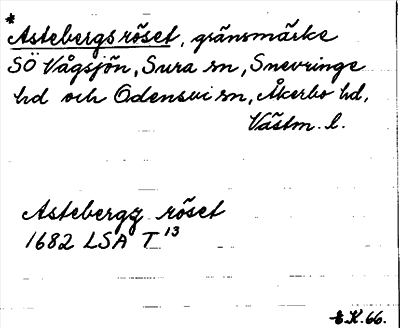 *
Astebergsröset, gränsmärke
SÖ Vågsjön, Sura sn, Snevringe
hd och Odensvi sn, Åkerbo hd,
Västm. l.
Astebergz röset
1682 LSA T 13
E.K. 66.